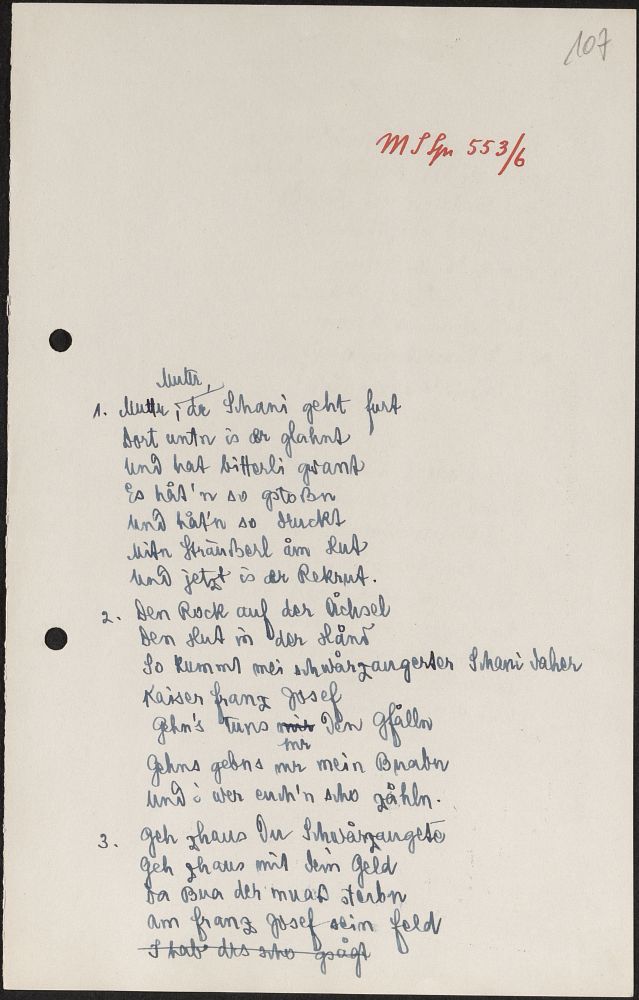 107
MS Spr 553/6
Mutter,
1. Mutter, da Schani geht furt
Dort untn is er glahnt
Und hat bitterli gwant
Es håt'n so gstoßn
Und håt'n so druckt
Mitn Sträußerl åm Hut
Und jetzt is er Rekrut.
2. Den Rock auf der Åchsel
Den Hut in der Hånd
So kummt mei schwårzaugerter Schani daher
Kaiser Franz Josef
Gehn's tuns mir den Gfålln
mr
Gehns gebns mr mein Buabn
Und i wer euch'n scho zåhln.
3. Geh zhaus Du Schwårzaugete
Geh zhaus mit dein Geld
Da Bua der muaß sterbn
am Franz Josef sein Feld
I hab des scho gsågt